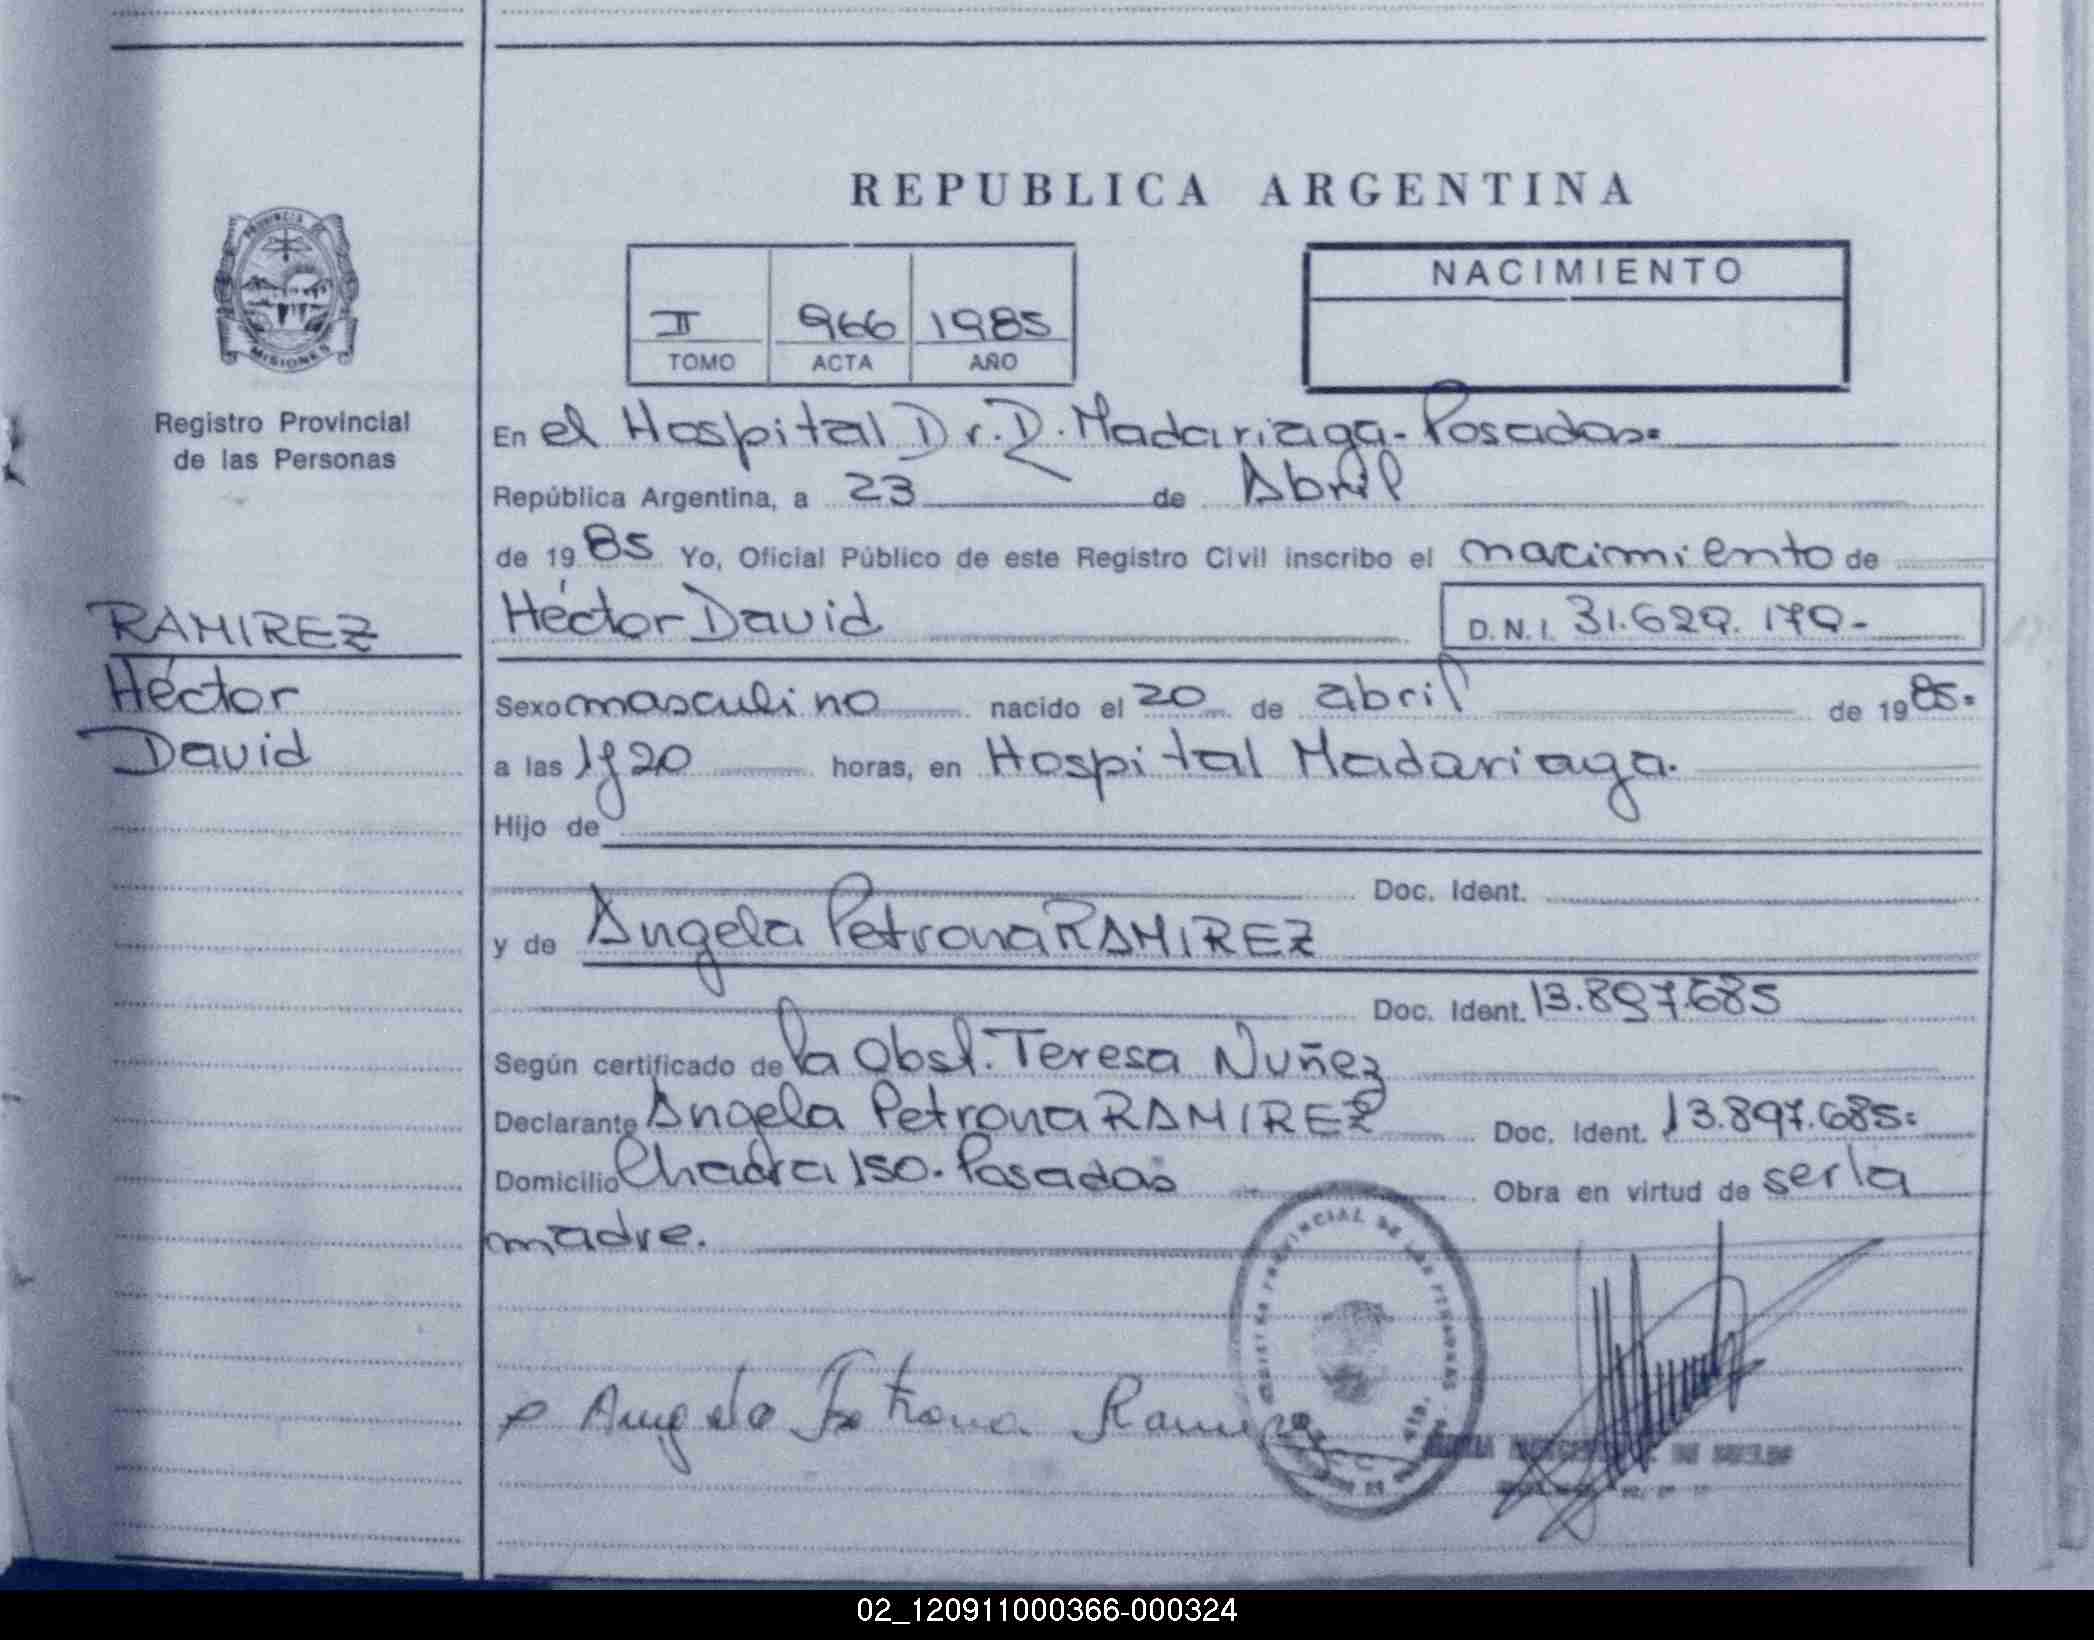 REPUBLICA ARGENTINA
PROVINCIA DE
MISIONES
Registro Provincial
de las Personas
II 966 1985
TOMO ACTA AÑO
NACIMIENTO
En el Hospital Dr. R. Madariaga - Posadas
República Argentina, a 23 de Abril
de 1985 Yo, Oficial Público de este Registro Civil inscribo el nacimiento de
RAMIREZ
Héctor
David
Héctor David D.N.I. 31.629.179.-
Sexo masculino nacido el 20 de abril de 1985.
a las 19 20 horas, en Hospital Madariaga.
Hijo de
Doc. Ident.
y de Angela Petrona RAMIREZ
Doc. Ident. 13.897.685
Según certificado de la Obst. Teresa Nuñez
Declarante Angela Petrona RAMIREZ Doc. Ident. 13.897.685.
Domicilio Chacra 150. Posadas Obra en virtud de ser la
madre.
Angela Petrona Ramirez
PROVINCIAL DE LAS PERSONAS
02_120911000366-000324